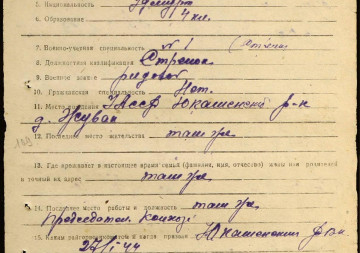 5. Национальность удмурт
6. Образование 4 кл.
7. Военно-учетная специальность № 1
8. Должностная квалификация Стрелок
9. Военное звание рядовой
10. Гражданская специальность Нет.
11. Место рождения УАССР Юкаменский р-н
д. Жуван
12. Последнее место жительства там же
13. Где проживает в настоящее время семья (фамилия, имя, отчество) жены или родителей
и точный их адрес там же
14. Последнее место работы и должность там же
председатель колхоза
15. Каким райгорвоенкоматом и когда призван Юкаменским рвк
27/I 44